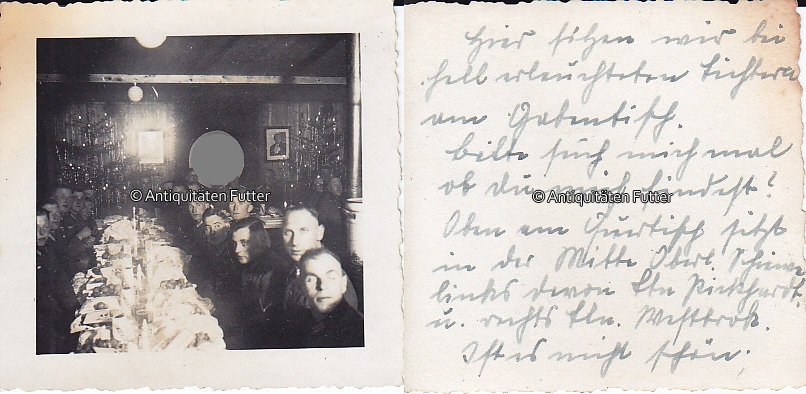 © Antiquitäten Futter
Hier sitzen wir bei
hell erleuchteten Lichtern
am Gabentisch.
bitte such mich mal
ob du mich findest?
© Antiquitäten Futter
Oben am Quertisch sitzt
in der Mitte Oberl.
links davon Ltn Rickhardt,
u. rechts Ltn. Westbrok.
Ist es nicht schön,